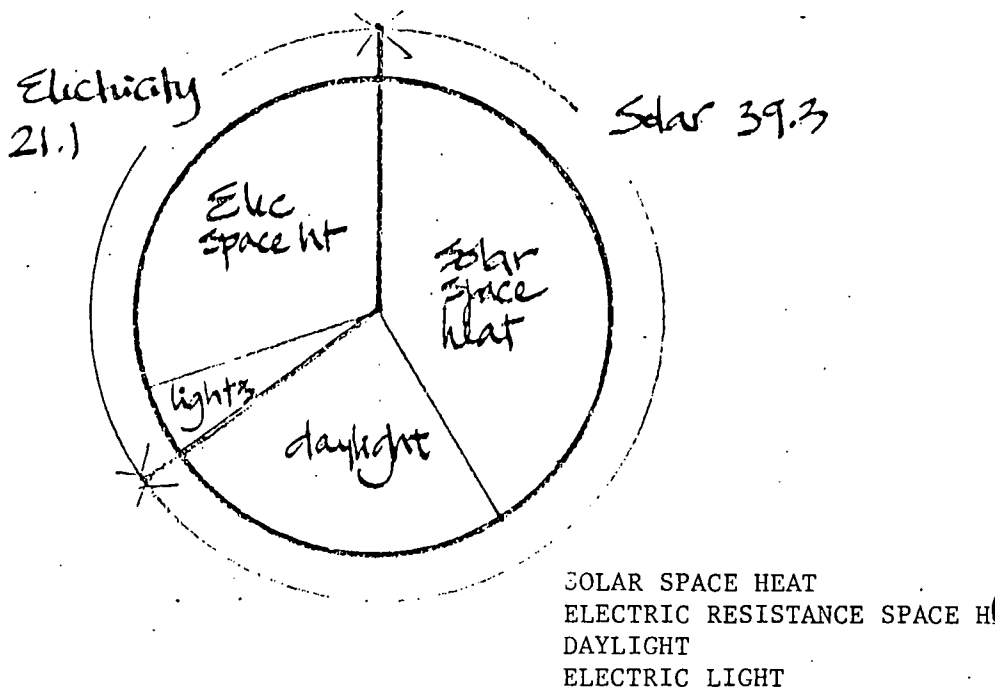 Electricity
21.1
Solar 39.3
Elec
space ht
Solar
space
heat
lights
daylight
SOLAR SPACE HEAT
ELECTRIC RESISTANCE SPACE H
DAYLIGHT
ELECTRIC LIGHT